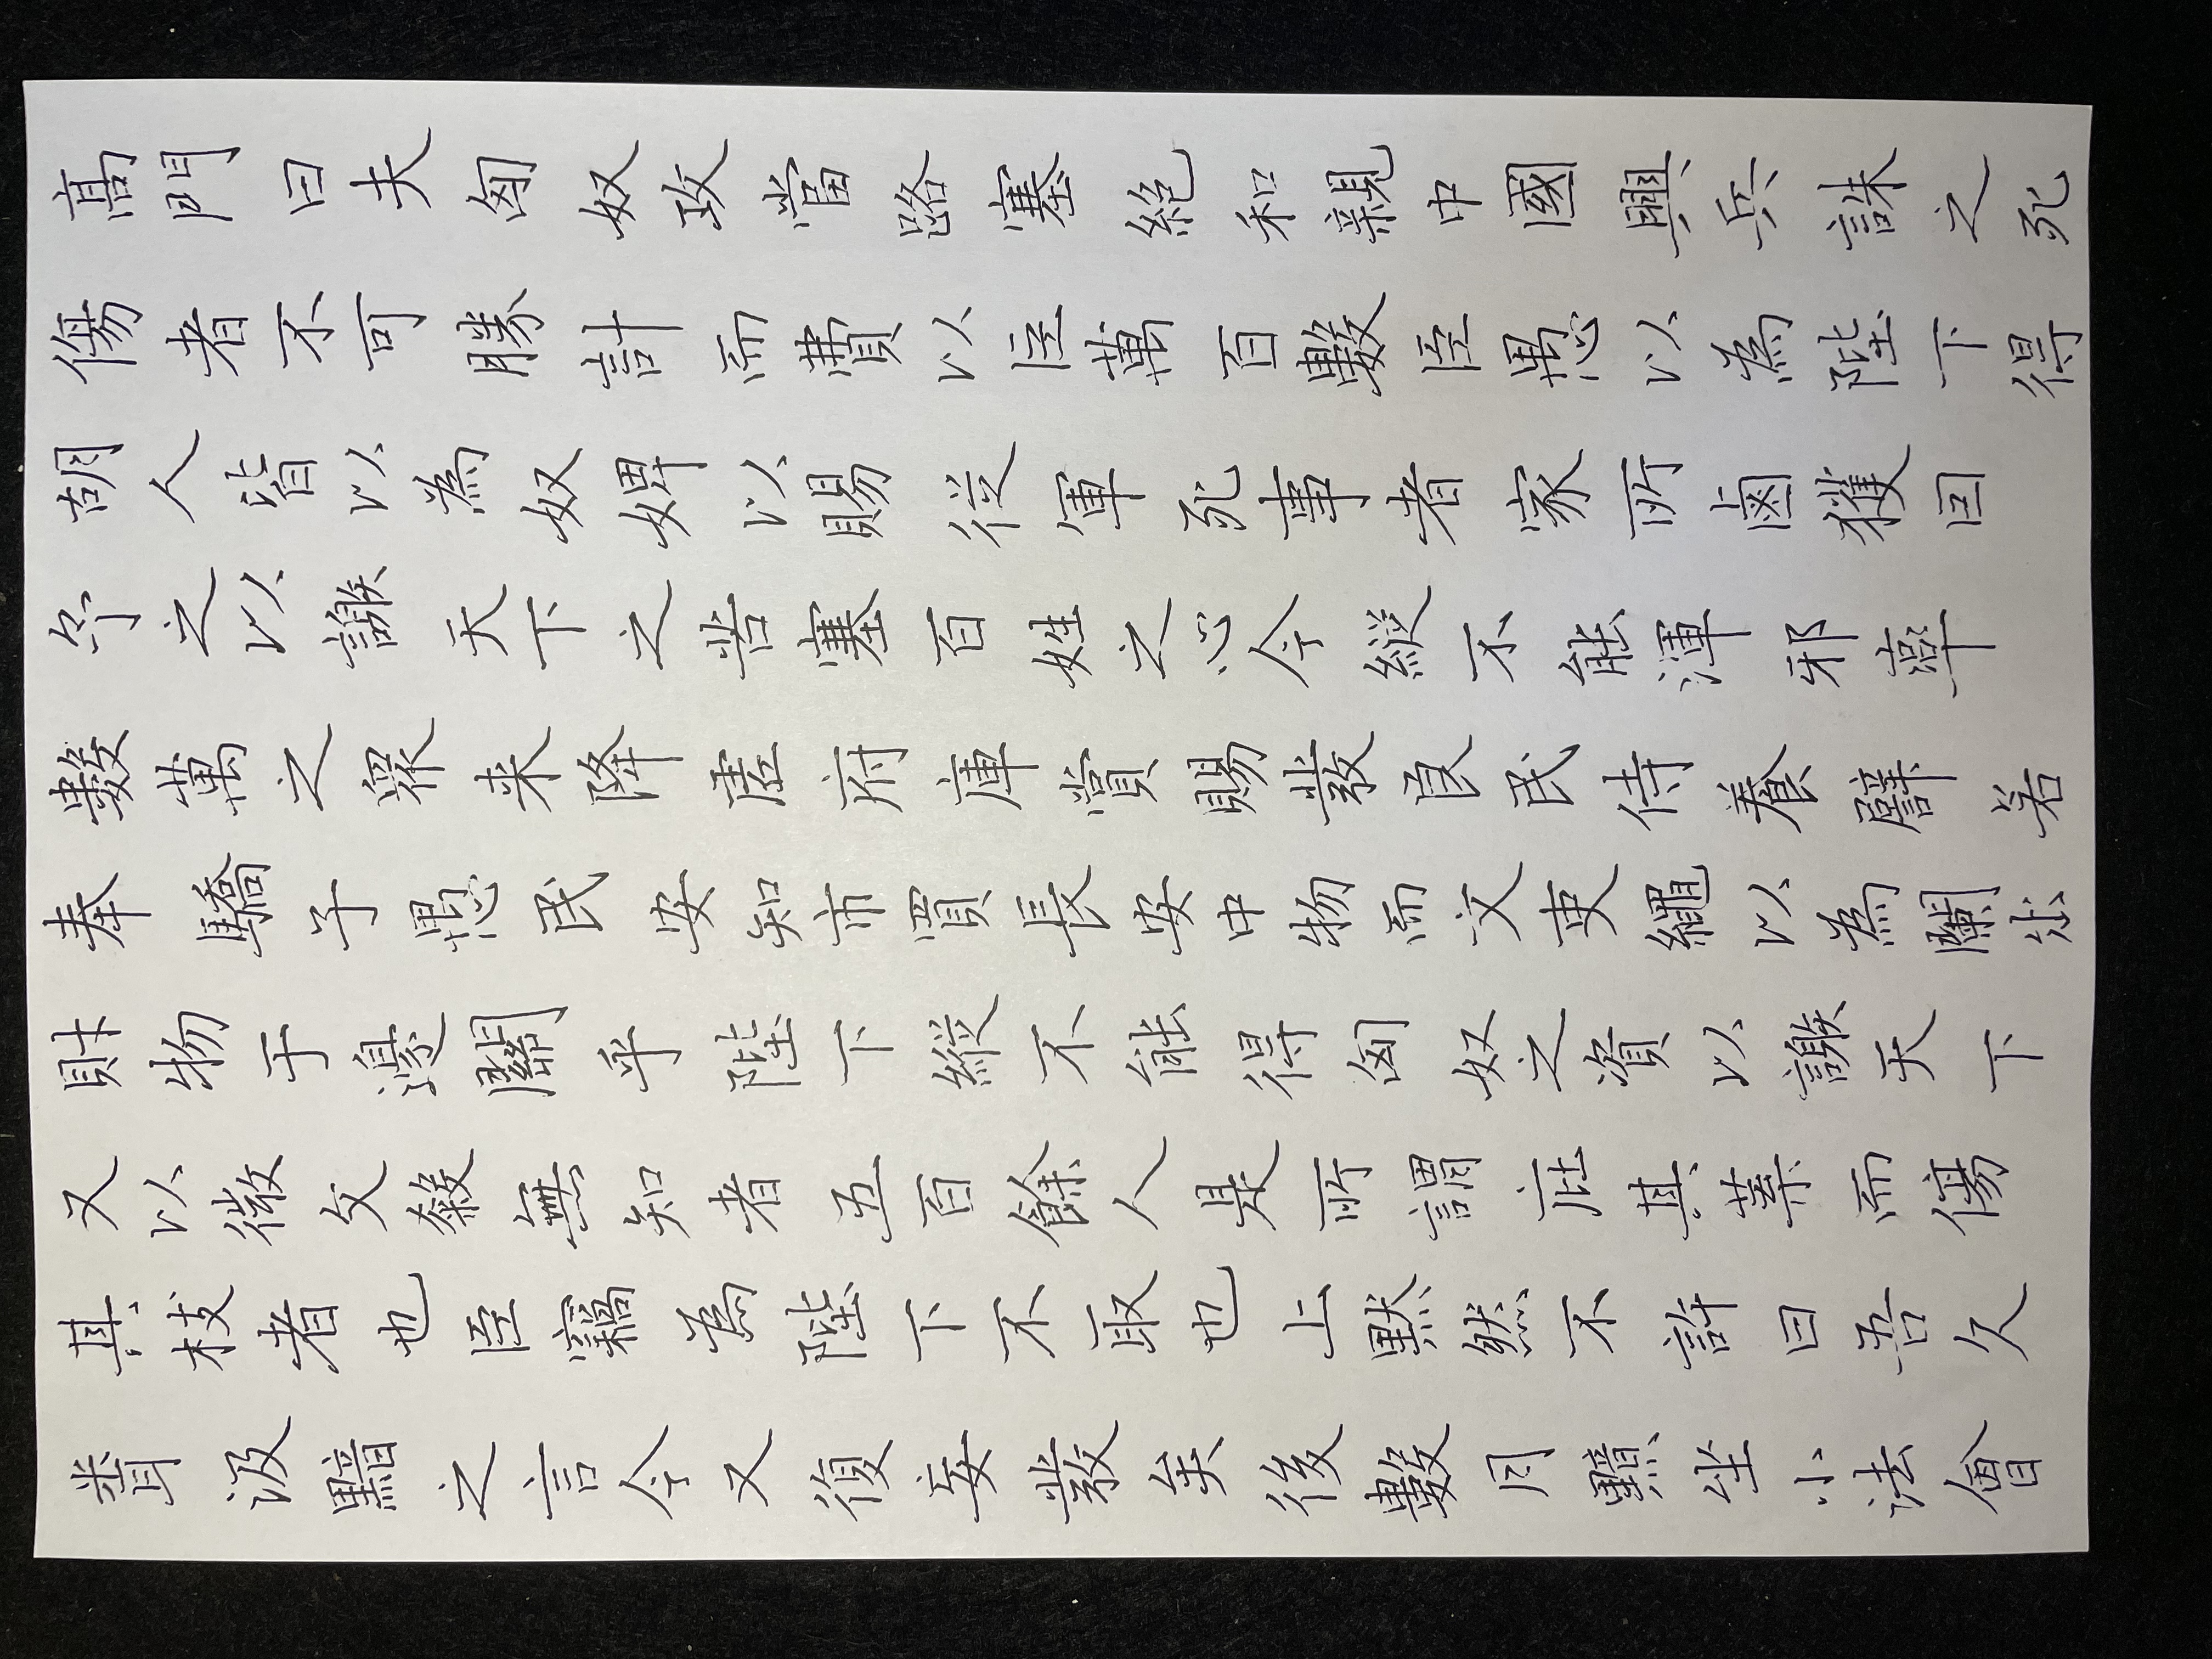 高門曰夫匈奴攻當路塞絕和親中國興兵誅之死
傷者不可勝計而費以臣萬百數臣愚以為陛下得
胡人皆以為奴婢以賜從軍死事者家所鹵獲因
予之以謝天下之苦塞百姓之心今縱不能渾邪率
數萬之眾来降虛府庫賞賜發良民侍養譬若
奉驕子愚民安知市買長安中物而文吏繩以為闌出
財物于邊關乎陛下縱不能得匈奴之資以謝天下
又以微文殺無知者五百餘人是所謂庇其葉而傷
其枝者也臣竊為陛下不取也上默然不許曰吾久
不聞汲黯之言今又復妄發矣後數月黯坐小法會